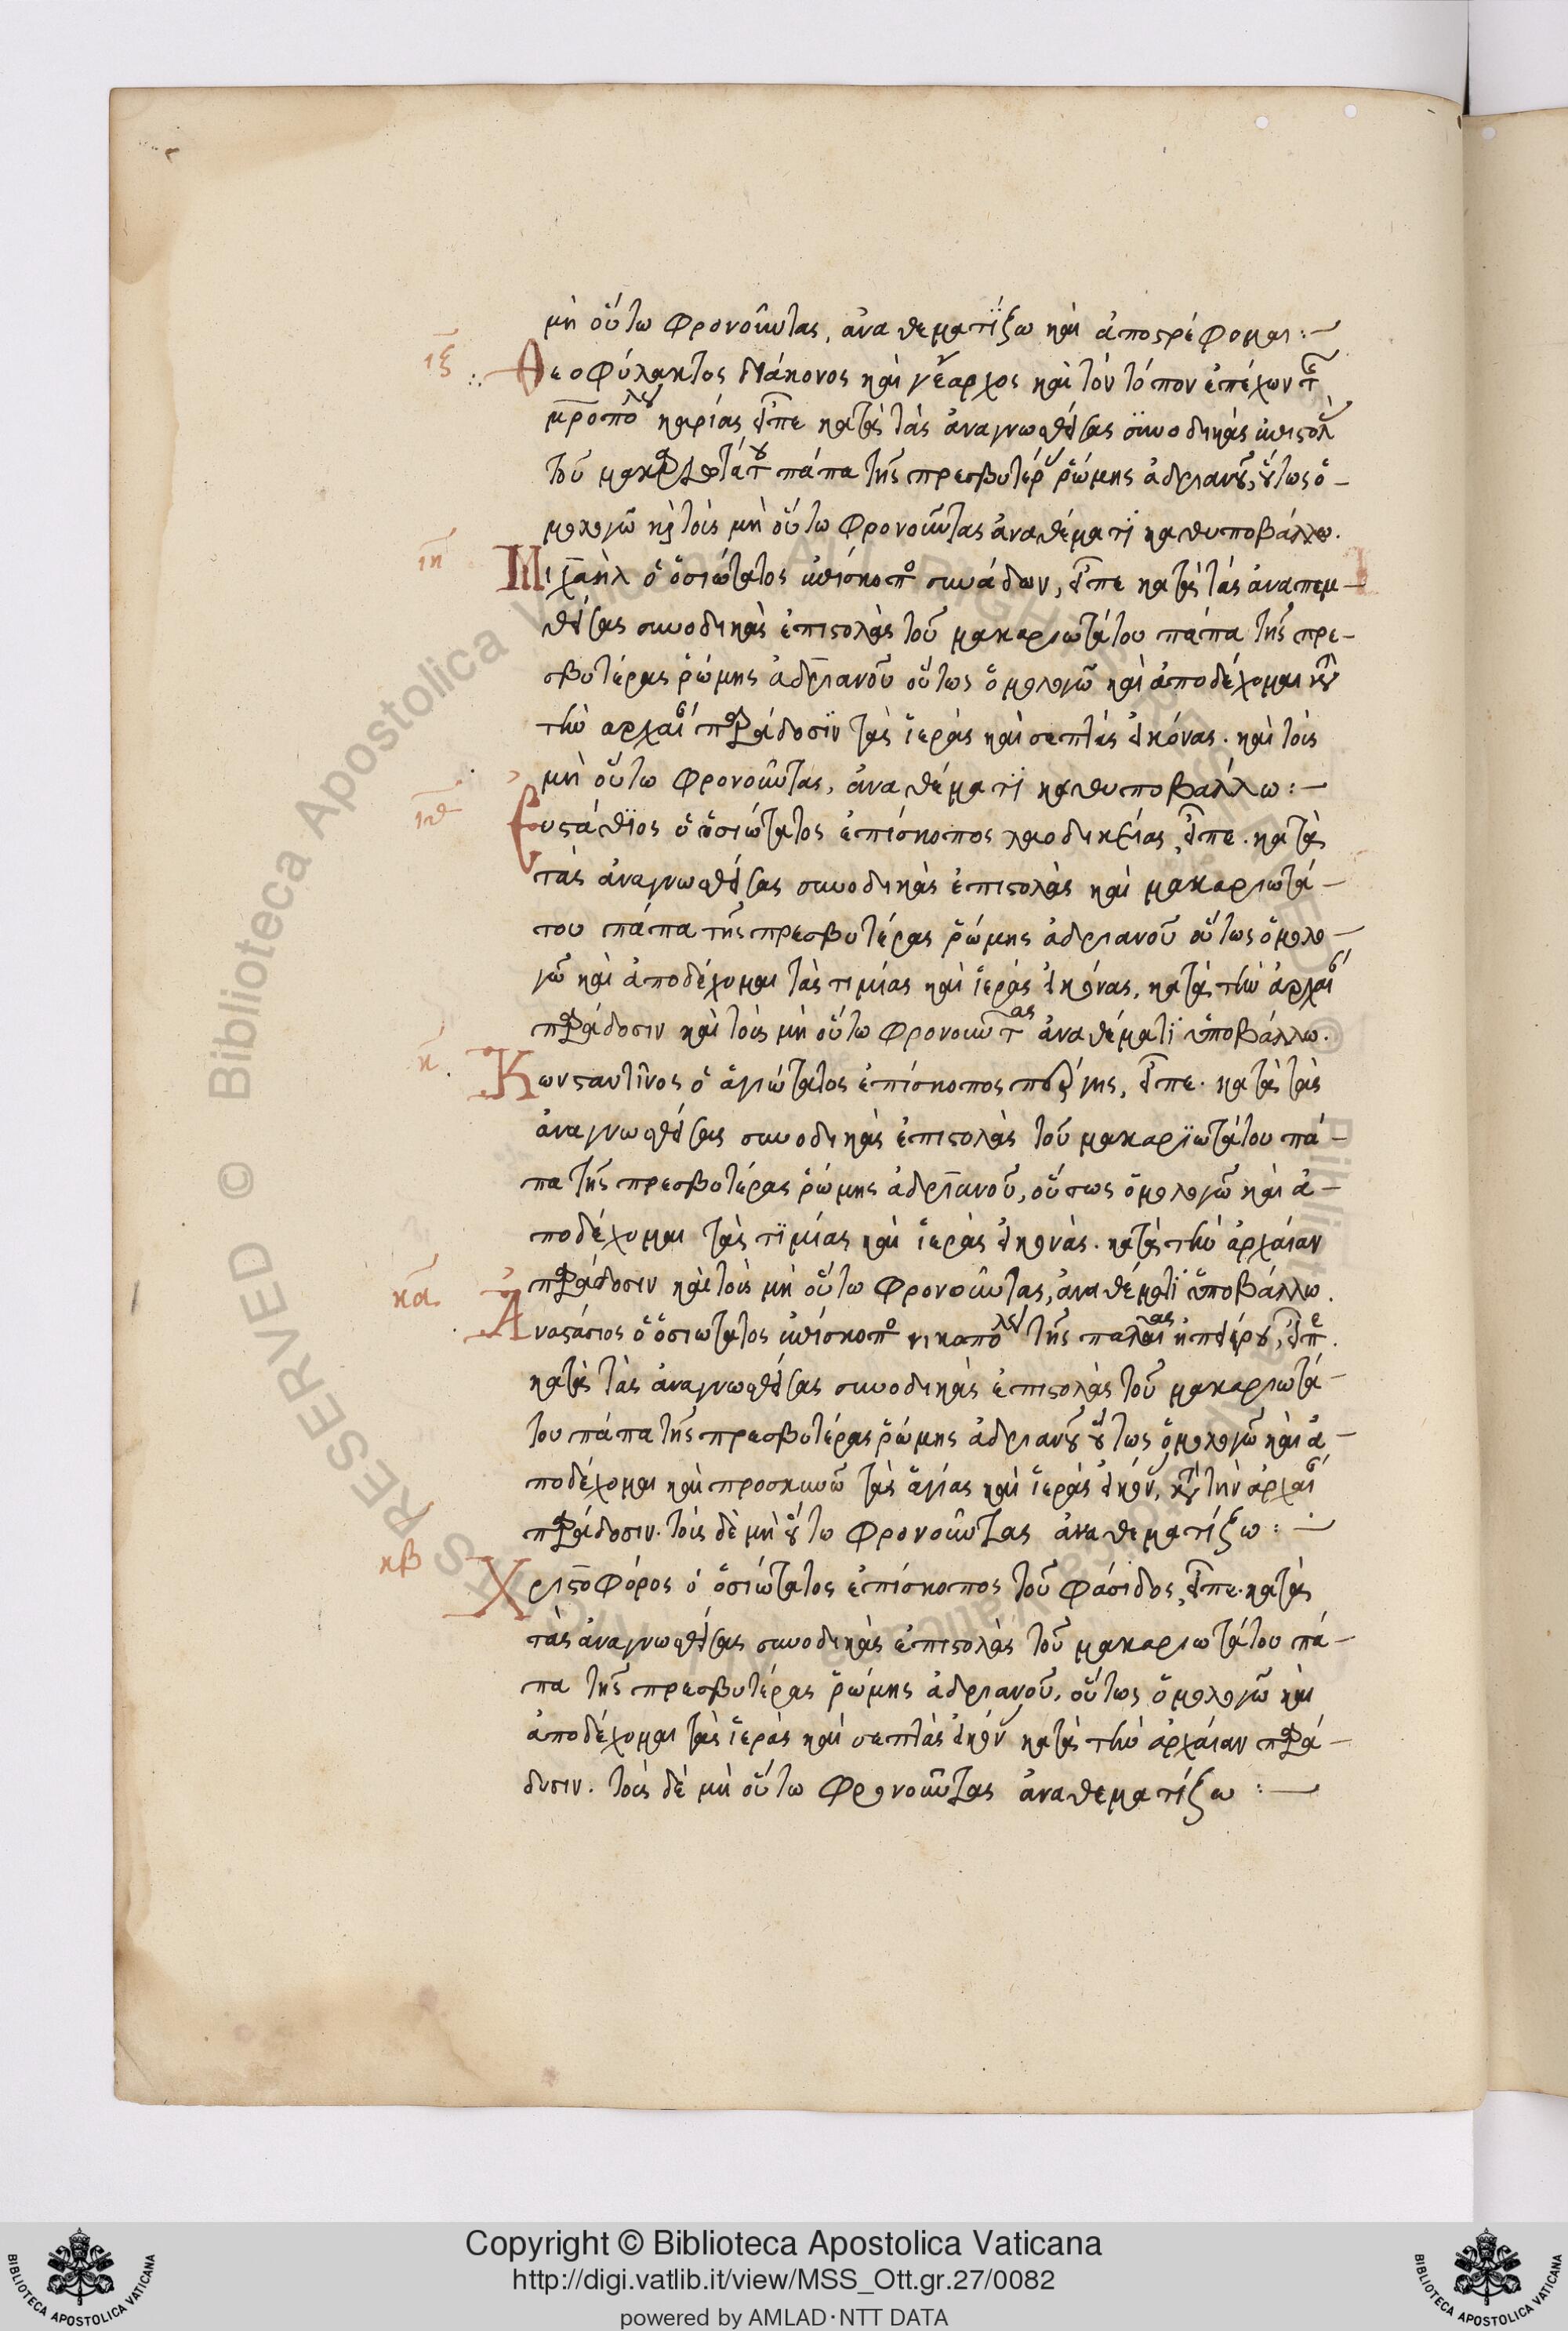 μὴ οὕτω φρονοῦντας, ἀναθεματίζω καὶ ἀποστρέφομαι:—
Θεοφύλακτος διάκονος καὶ ἔξαρχος καὶ τὸν τόπον ἐπέχων τ
μροπολ καρίας εἶπε κατὰ τὰς ἀναγνωσθείσας συνοδικὰς ἐπιστολ
τοῦ μακαριωτάτ πάπα τῆς πρεσβυτέρ ῥώμης ἀδριανοῦ, οὕτως ὁ-
μολογῶ κὶ τοὺς μὴ οὕτω φρονοῦντας ἀναθέματι καθυποβάλλω.
ιη Μιχαὴλ ὁ ὁσιώτατος ἐπίσκοπο συνάδων, εἶπε κατὰ τὰς ἀναπεμ-
θείσας συνοδικὰς ἐπιστολὰς τοῦ μακαριωτάτου πάπα τῆς πρε-
σβυτέρας ῥώμης ἀδριανοῦ οὕτως ὁμολογῶ καὶ ἀποδέχομαι
τὴν ἀρχαί παράδοσιν τὰς ἱερὰς καὶ σεπτὰς εἰκόνας. καὶ τοὺς
μὴ οὕτω φρονοῦντας, ἀναθέματι καθυποβάλλω:—
ιθ Ευστάθιος ὁ ὁσιώτατος ἐπίσκοπος λαοδικείας, εἶπε. κατὰ
τὰς ἀναγνωσθείσας συνοδικὰς ἐπιστολὰς καὶ μακαριωτά-
του πάπα τῆς πρεσβυτέρας ῥώμης ἀδριανοῦ οὕτως ὁμολο-
γῶ καὶ ἀποδέχομαι τὰς τιμίας καὶ ἱερὰς εἰκόνας, κατὰ τὴν ἀρχαί
παράδοσιν καὶ τοὺς μὴ οὕτω φρονοῦντας ἀναθέματι ὑποβάλλω.
κ Κωνσταντῖνος ὁ ἁγιώτατος ἐπίσκοπος πέργης, εἶπε. κατὰ τὰς
ἀναγνωσθείσας συνοδικὰς ἐπιστολὰς τοῦ μακαριωτάτου πά-
πα τῆς πρεσβυτέρας ῥώμης ἀδριανοῦ, οὕτως ὁμολογῶ καὶ ἀ-
ποδέχομαι τὰς τιμίας καὶ ἱερὰς εἰκονάς. κατὰ τὴν ἀρχαίαν
παράδοσιν καὶ τοὺς μὴ οὕτω φρονοῦντας, ἀναθέματι ὑποβάλλω.
κα Ἀναστάσιος ὁ ὁσιωτατος ἐπίσκοπο νικοπολ τῆς παλαιας ἠπείρου, εἶπε.
κατὰ τὰς ἀναγνωσθείσας συνοδικὰς ἐπιστολὰς τοῦ μακαριωτά-
του πάπα τῆς πρεσβυτέρας ῥώμης ἀδριανοῦ οὕτως ὁμολογῶ καὶ ἀ-
ποδέχομαι καὶ προσκυνῶ τὰς ἁγίας καὶ ἱερὰς εἰκόν, κατ τὴν ἀρχαί
παράδοσιν. τοὺς δὲ μὴ οὕτω φρονοῦντας ἀναθεματίζω:—
κβ Χριστοφόρος ὁ ὁσιώτατος ἐπίσκοπος τοῦ φάσιδος, εἶπε. κατὰ
τὰς ἀναγνωσθείσας συνοδικὰς ἐπιστολὰς τοῦ μακαριωτάτου πά-
πα τῆς πρεσβυτέρας ῥώμης ἀδριανοῦ, οὕτως ὁμολογῶ καὶ
ἀποδέχομαι τὰς ἱερὰς καὶ σεπτὰς εἰκόν κατὰ τὴν ἀρχαίαν παρά-
δοσιν. τοὺς δὲ μὴ οὕτω φρονοῦντας ἀναθεματίζω:—
© Biblioteca Apostolica Vaticana
ALL RIGHTS RESERVED
Copyright © Biblioteca Apostolica Vaticana
http://digi.vatlib.it/view/MSS_Ott.gr.27/0082
powered by AMLAD·NTT DATA
BIBLIOTECA APOSTOLICA VATICANA
BIBLIOTECA APOSTOLICA VATICANA